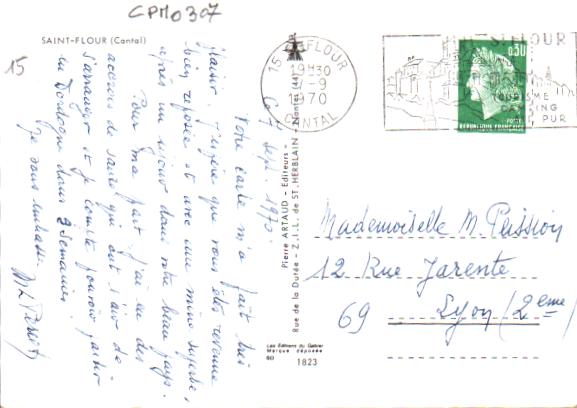 CPM0307
SAINT-FLOUR (Cantal)
15
Ce 7 Sept. 1970.
Votre carte m'a fait très
plaisir. J'espère que vous êtes revenue
bien reposée et avec une mine superbe,
après un séjour dans notre beau pays.
Pour ma part, j'ai eu des
ennuis de santé qui ont l'air de
s'arranger et je compte pouvoir partir
en Dordogne dans 2 semaines.
Je vous embrasse
Pierre ARTAUD - Editeurs -
Rue de la Dutée - Z.I.L. de ST. HERBLAIN - Nantes (44)
Les Editions du Gabier
Marque déposée
1823
15 ST FLOUR
19H30
-9
1970
CANTAL
ST FLOUR
TOURISME
PUR
0,30
POSTES
REPUBLIQUE FRANÇAISE
Mademoiselle M.
12 Rue Jarente
69 Lyon (2eme)